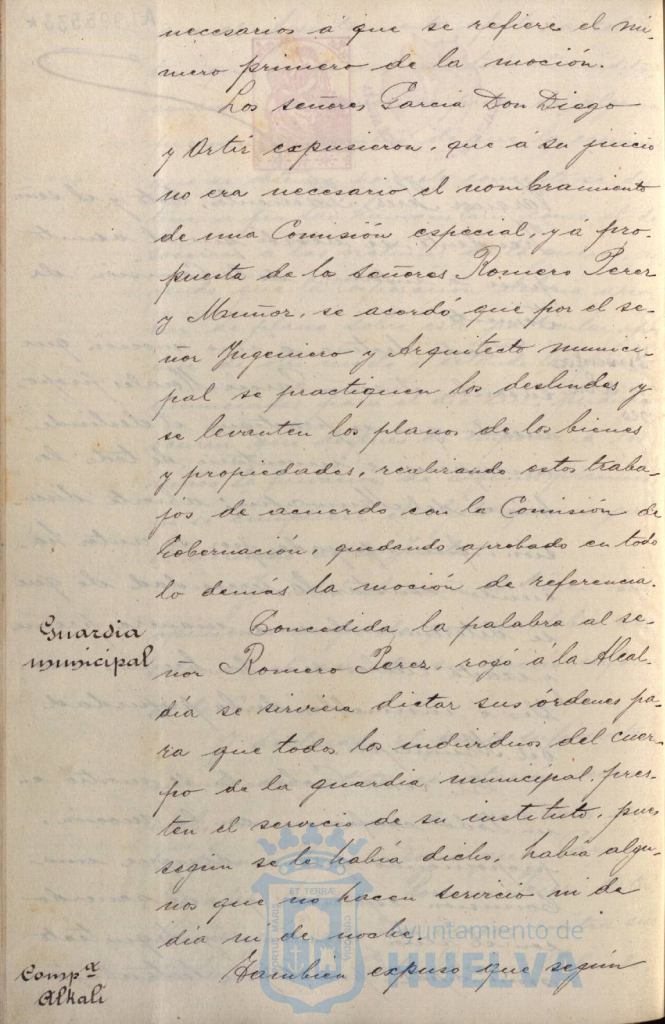 necesarios á que se refiere el nú-
mero primero de la moción.
Los señores Garcia Don Diego
y Ortiz expusieron, que á su juicio
no era necesario el nombramiento
de una Comisión especial, y á pro-
puesta de los señores Romero Perez
y Muñoz, se acordó que por el se-
ñor Ingeniero y Arquitecto munici-
pal se practiquen los deslindes y
se levanten los planos de los bienes
y propiedades, realizando estos traba-
jos de acuerdo con la Comisión de
Gobernación, quedando aprobado en todo
lo demás la moción de referencia.
Guardia
municipal
Concedida la palabra al se-
ñor Romero Perez, rogó á la Alcal-
día se sirviera dictar sus órdenes pa-
ra que todos los individuos del cuer-
po de la guardia municipal, pres-
ten el servicio de su instituto, pues
según se le había dicho, había algu-
nos que no hacen servicio ni de
día ni de noche.
Compª
Alkali
También expuso que según
ET TERRÆ
PORTUS MARIS
Ayuntamiento de
HUELVA